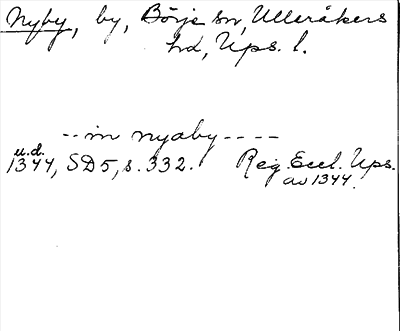 Nyby, by, Börje sn, Ulleråkers
hd, Ups. l.
-- in nyaby ----
u.d.
1344, SD5, s. 332. Reg. Eccl. Ups.
av 1344.